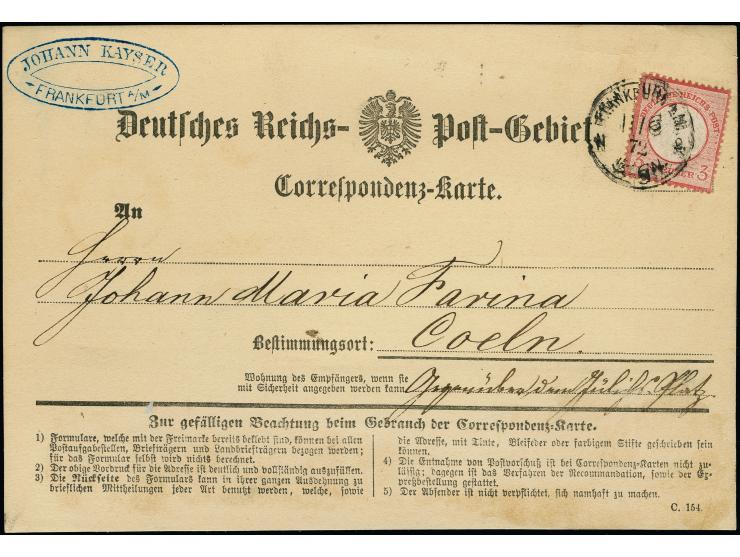 JOHANN KAYSER
FRANKFURT A/M
Deutsches Reichs-Post-Gebiet
FRANKFURT A.M.
72
3
Correspondenz-Karte.
An
Herrn
Johann Maria Farina
Bestimmungsort: Coeln.
Wohnung des Empfängers, wenn sie
mit Sicherheit angegeben werden kann
Gegenüber dem Jülichs Platz
Zur gefälligen Beachtung beim Gebrauch der Correspondenz-Karte.
1) Formulare, welche mit der Freimarke bereits beklebt sind, können bei allen
Postaufgabestellen, Briefträgern und Landbriefträgern bezogen werden;
für das Formular selbst wird nichts berechnet.
2) Der obige Vordruck für die Adresse ist deutlich und vollständig auszufüllen.
3) Die Rückseite des Formulars kann in ihrer ganzen Ausdehnung zu
brieflichen Mittheilungen jeder Art benutzt werden, welche, sowie
die Adresse, mit Tinte, Bleifeder oder farbigem Stifte geschrieben sein
können.
4) Die Entnahme von Postvorschuß ist bei Correspondenz-Karten nicht zu-
lässig; dagegen ist das Verfahren der Recommandation, sowie der Ex-
preßbestellung gestattet.
5) Der Absender ist nicht verpflichtet, sich namhaft zu machen.
C. 154.